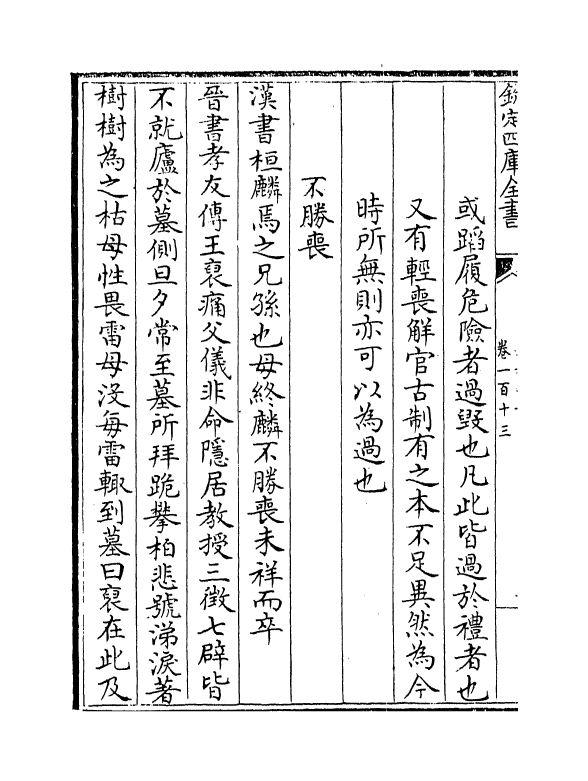 欽定四庫全書
卷一百十三
或蹈履危險者過毀也凡此皆過於禮者也
又有輕喪解官古制有之本不足異然為今
時所無則亦可以為過也
不勝喪
漢書桓麟焉之兄孫也母終麟不勝喪未祥而卒
晉書孝友傳王裒痛父儀非命隱居教授三徵七辟皆
不就廬於墓側旦夕常至墓所拜跪攀柏悲號涕淚著
樹樹為之枯母性畏雷母沒每雷輒到墓曰裒在此及